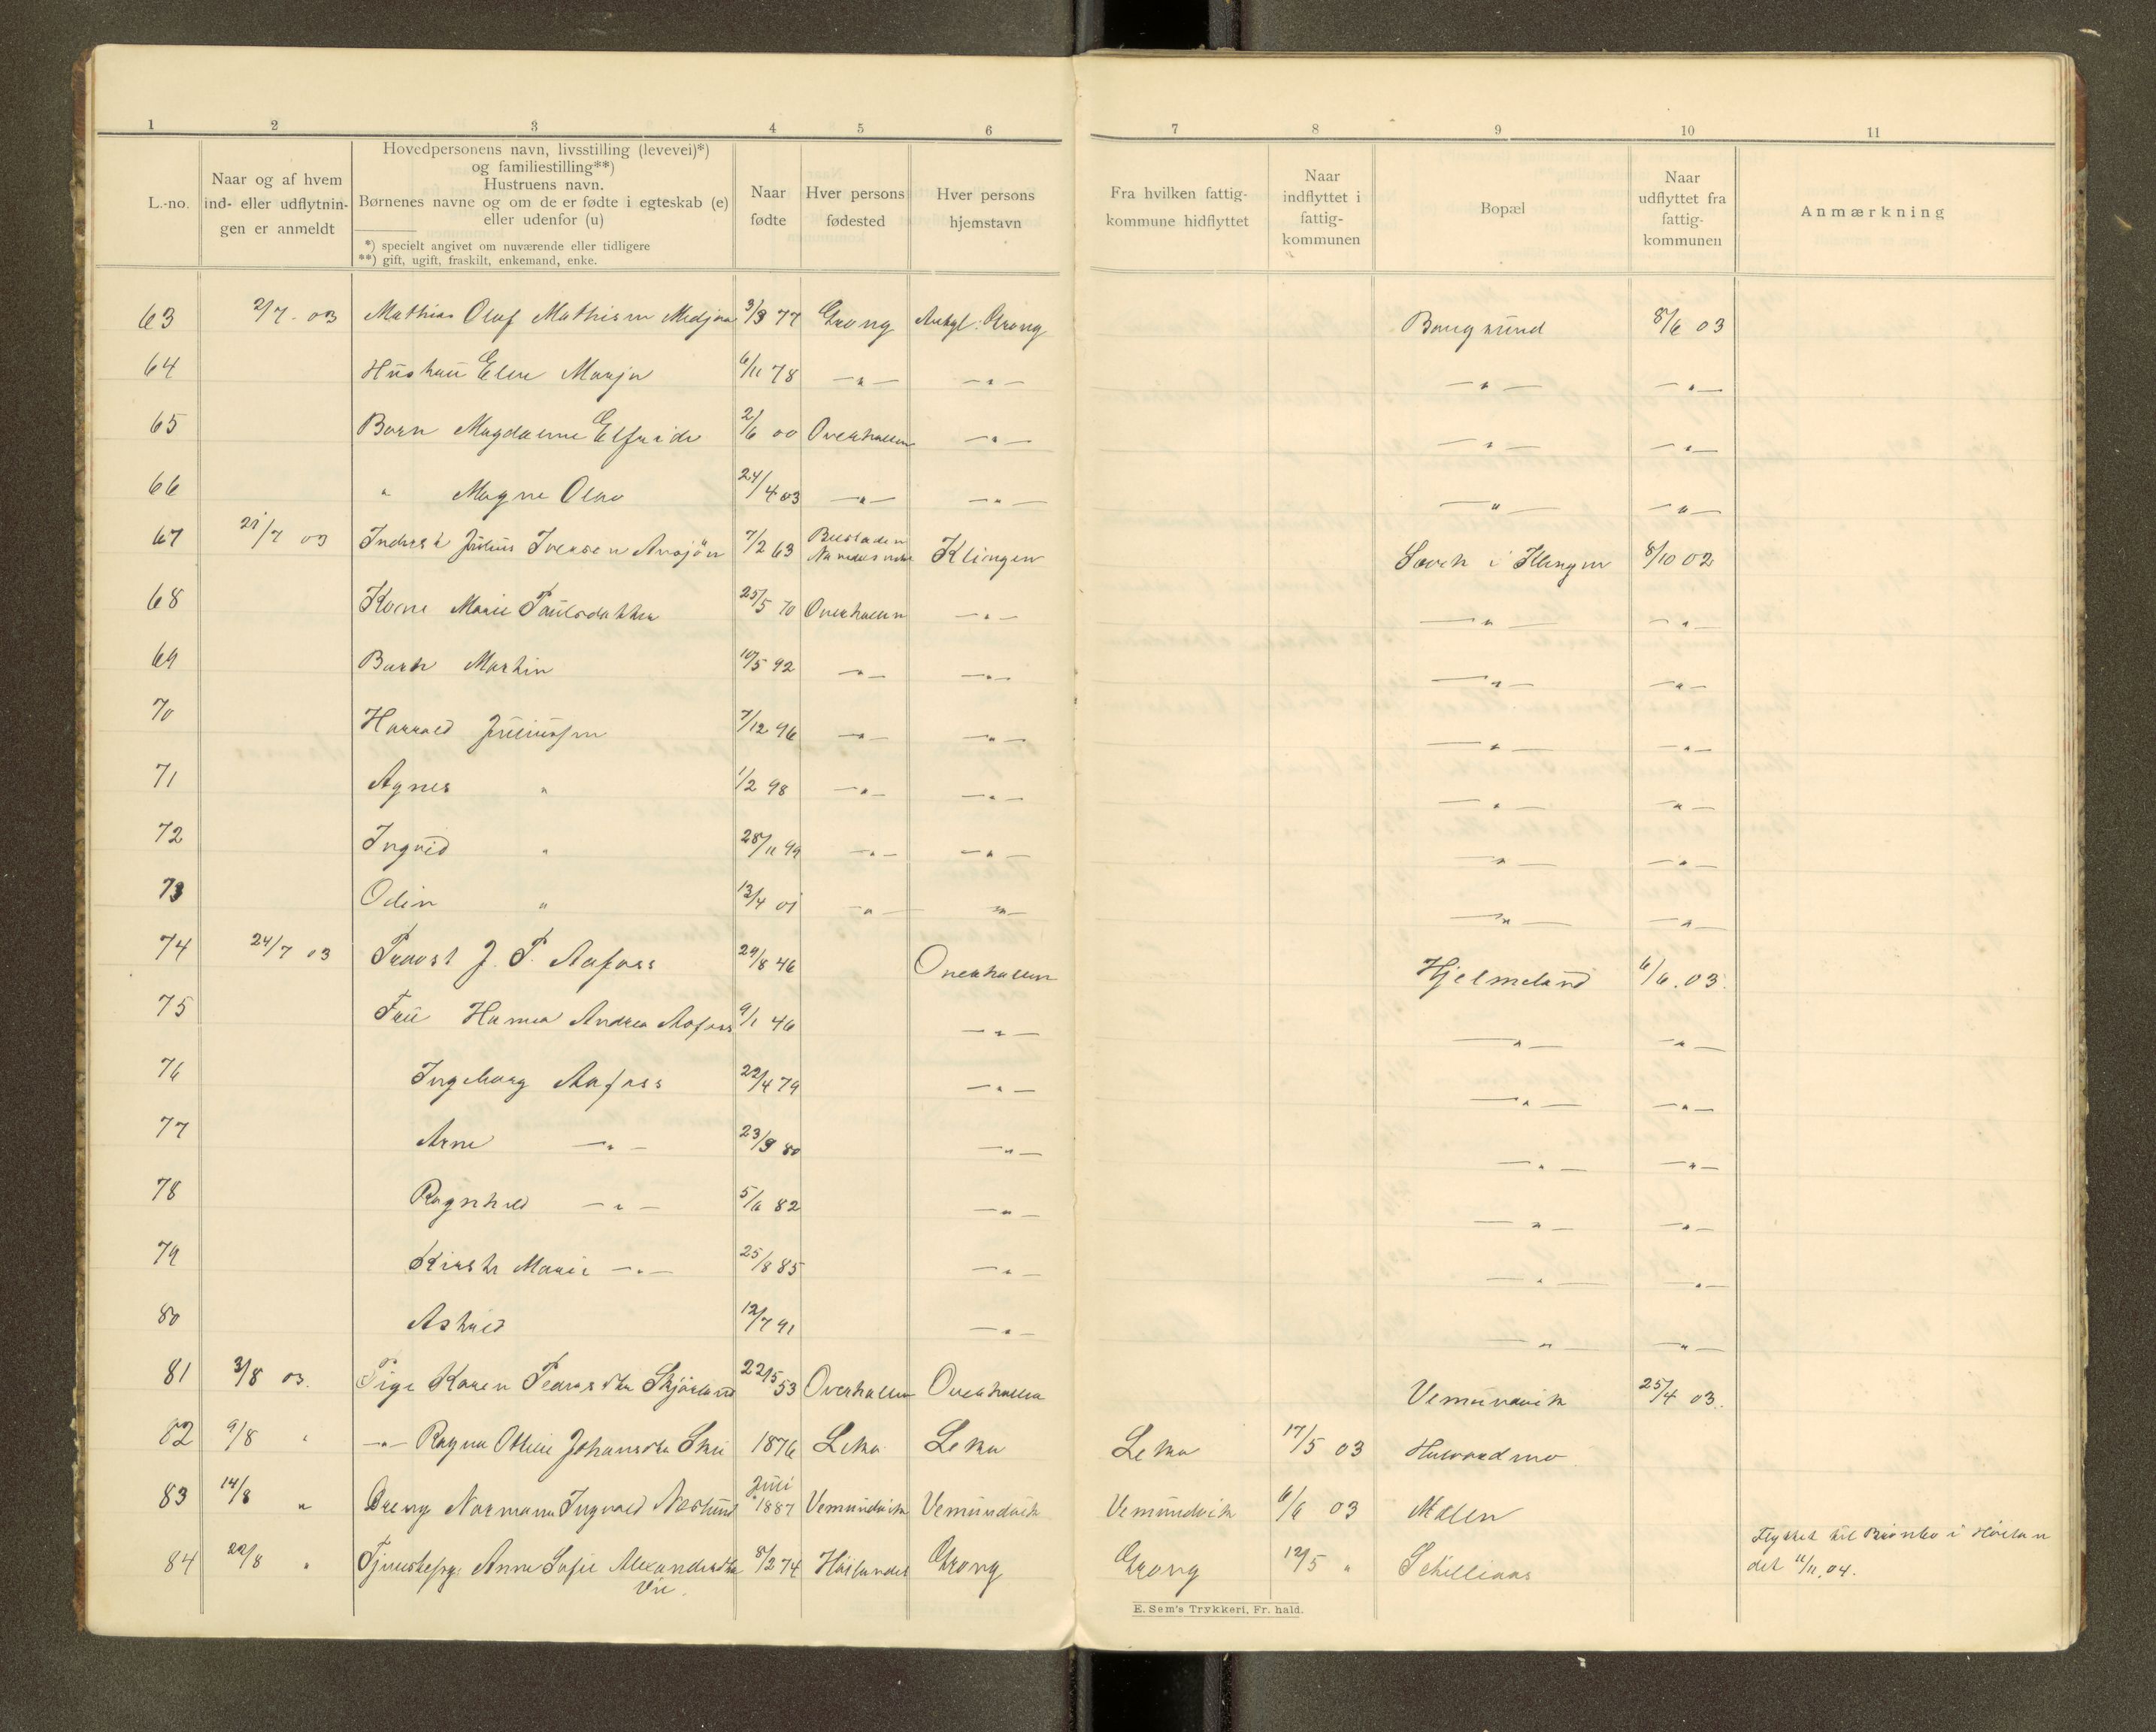 1 2 3 4 5 6 7 8 9 10 11
L.-no.
Naar og af hvem
ind- eller udflytnin-
gen er anmeldt
Hovedpersonens navn, livsstilling (levevei)*)
og familiestilling**)
Hustruens navn.
Børnenes navne og om de er fødte i egteskab (e)
eller udenfor (u)
*) specielt angivet om nuværende eller tidligere
**) gift, ugift, fraskilt, enkemand, enke.
Naar
fødte
Hver persons
fødested
Hver persons
hjemstavn
Fra hvilken fattig-
kommune hidflyttet
Naar
indflyttet i
fattig-
kommunen
Bopæl
Naar
udflyttet fra
fattig-
kommunen
Anmærkning
63 2/7 03 Mathias Olaf Mathisen 3/3 77 Grong Grong Bangsund 8/6 03
64 Hustru Elen Marja 6/11 78 —"— —"— —"— —"—
65 Barn Magdalene Elfride 2/6 00 Overhallen —"— —"— —"—
66 " Magne Olav 24/4 03 —"— —"— —"— —"—
67 21/7 03 Indrest Julius Iversen 7/2 63 Beistaden Namdalen Klingen i Klingen 8/10 02
68 Karen Marie Paulsdatter 25/5 70 Overhallen —"— —"— —"—
69 Barn Martin 10/5 92 —"— —"— —"— —"—
70 Harald Juliussen 7/12 96 —"— —"— —"— —"—
71 Agnes " 1/2 98 —"— —"— —"— —"—
72 Ingvid " 28/11 99 —"— —"— —"— —"—
73 Odin " 13/4 01 —"— —"— —"— —"—
74 24/7 03 Provst J. P. Aafoss 29/8 46 Overhallen Hjelmeland 6/6. 03.
75 Fru Hanna Andrea Aafoss 9/1 46 —"— —"— —"—
76 Ingeborg Aafoss 22/4 79 —"— —"— —"—
77 Arne —"— 23/9 80 —"— —"— —"—
78 Ragnhild —"— 5/6 82 —"— —"— —"—
79 Kirste Marie —"— 25/8 85 —"— —"— —"—
80 Astrid 12/7 91 —"— —"— —"—
81 3/8 03. Pige Karen Pedersdtr Skjærland 22/5 53 Overhallen Overhallen Vemundvik 25/4 03.
82 9/8 " —"— Ragna Otilie Johansdtr 1876 Leka Leka Leka 17/5 03 Halvardmo
83 14/8 " Dreng Normann Ingvald Juli 1887 Vemundvik Vemundvik Vemundvik 6/6 03 Malen
84 22/8 " Tjenestepg. Anne Sofie Alexandersdtr 8/2 74 Høilandet Grong Grong 12/5 "
Vie.
Flyttet til i Høilan
det 11/11. 04.
E. Sem's Trykkeri, Fr. hald.